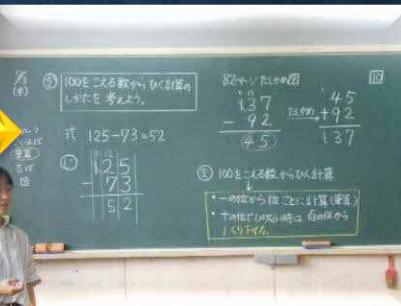 (水)
100をこえる数からひく計算の
しかたを考えよう。
式 125-73=52
125
- 73
52
82ページ たしかめ
137
- 92
45
たしかめ
45
+92
137
100をこえる数からひく計算
・一の位から位ごとに計算(筆算)
・十の位でひけない時は百の位から
1くり下げる。